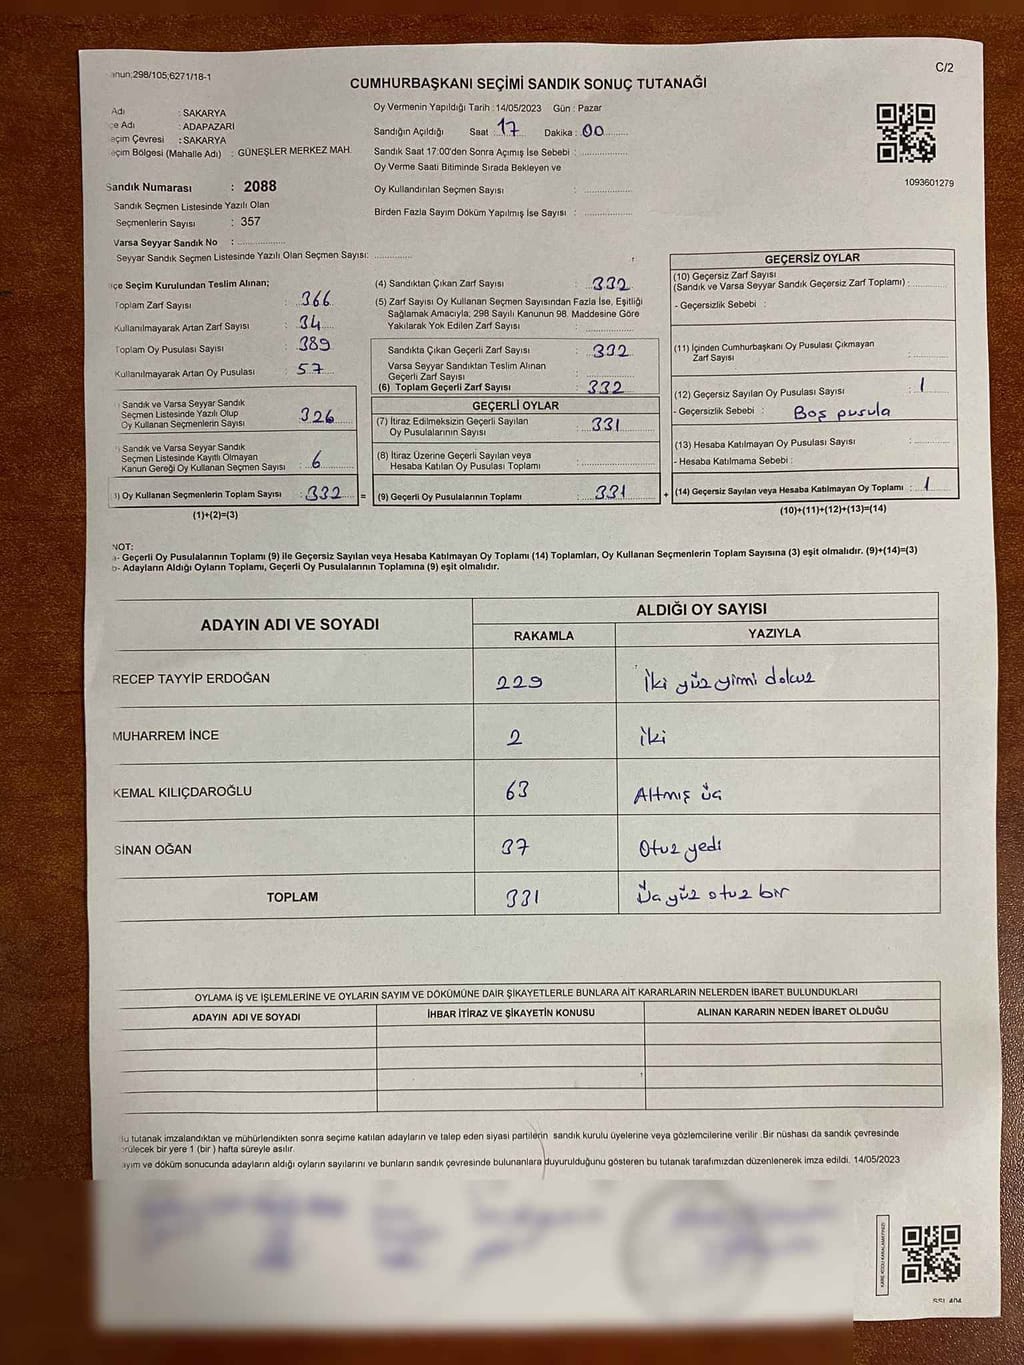 C/2
298/105;6271/18-1
CUMHURBAŞKANI SEÇİMİ SANDIK SONUÇ TUTANAĞI
Adı : SAKARYA
Adı : ADAPAZARI
Çevresi : SAKARYA
Bölgesi (Mahalle Adı) : GÜNEŞLER MERKEZ MAH.
Sandık Numarası : 2088
Sandık Seçmen Listesinde Yazılı Olan
Seçmenlerin Sayısı : 357
Varsa Seyyar Sandık No :
Seyyar Sandık Seçmen Listesinde Yazılı Olan Seçmen Sayısı:
Oy Vermenin Yapıldığı Tarih :14/05/2023 Gün : Pazar
Sandığın Açıldığı Saat : 17 Dakika : 00
Sandık Saat 17:00'den Sonra Açımış İse Sebebi :
Oy Verme Saati Bitiminde Sırada Bekleyen ve
Oy Kullandırılan Seçmen Sayısı :
Birden Fazla Sayım Döküm Yapılmış İse Sayısı :
1093601279
Seçim Kurulundan Teslim Alınan;
Toplam Zarf Sayısı : 366
Kullanılmayarak Artan Zarf Sayısı : 34
Toplam Oy Pusulası Sayısı : 389
Kullanılmayarak Artan Oy Pusulası : 57
Sandık ve Varsa Seyyar Sandık
Seçmen Listesinde Yazılı Olup
Oy Kullanan Seçmenlerin Sayısı : 326
Sandık ve Varsa Seyyar Sandık
Seçmen Listesinde Kayıtlı Olmayan
Kanun Gereği Oy Kullanan Seçmen Sayısı : 6
) Oy Kullanan Seçmenlerin Toplam Sayısı : 332 =
(1)+(2)=(3)
(4) Sandıktan Çıkan Zarf Sayısı : 332
(5) Zarf Sayısı Oy Kullanan Seçmen Sayısından Fazla İse, Eşitliği
Sağlamak Amacıyla, 298 Sayılı Kanunun 98. Maddesine Göre
Yakılarak Yok Edilen Zarf Sayısı :
Sandıkta Çıkan Geçerli Zarf Sayısı : 332
Varsa Seyyar Sandıktan Teslim Alınan
Geçerli Zarf Sayısı :
(6) Toplam Geçerli Zarf Sayısı : 332
GEÇERLİ OYLAR
(7) İtiraz Edilmeksizin Geçerli Sayılan
Oy Pusulalarının Sayısı : 331
(8) İtiraz Üzerine Geçerli Sayılan veya
Hesaba Katılan Oy Pusulası Toplamı :
(9) Geçerli Oy Pusulalarının Toplamı : 331 +
GEÇERSİZ OYLAR
(10) Geçersiz Zarf Sayısı
(Sandık ve Varsa Seyyar Sandık Geçersiz Zarf Toplamı) :
- Geçersizlik Sebebi :
(11) İçinden Cumhurbaşkanı Oy Pusulası Çıkmayan
Zarf Sayısı :
(12) Geçersiz Sayılan Oy Pusulası Sayısı : 1
- Geçersizlik Sebebi : Boş pusula
(13) Hesaba Katılmayan Oy Pusulası Sayısı :
- Hesaba Katılmama Sebebi :
(14) Geçersiz Sayılan veya Hesaba Katılmayan Oy Toplamı : 1
(10)+(11)+(12)+(13)=(14)
NOT:
a- Geçerli Oy Pusulalarının Toplamı (9) ile Geçersiz Sayılan veya Hesaba Katılmayan Oy Toplamı (14) Toplamları, Oy Kullanan Seçmenlerin Toplam Sayısına (3) eşit olmalıdır. (9)+(14)=(3)
b- Adayların Aldığı Oyların Toplamı, Geçerli Oy Pusulalarının Toplamına (9) eşit olmalıdır.
ADAYIN ADI VE SOYADI ALDIĞI OY SAYISI
RAKAMLA YAZIYLA
RECEP TAYYİP ERDOĞAN 229 İki yüz yirmi dokuz
MUHARREM İNCE 2 iki
KEMAL KILIÇDAROĞLU 63 Altmış üç
SİNAN OĞAN 37 Otuz yedi
TOPLAM 331 Üç yüz otuz bir
OYLAMA İŞ VE İŞLEMLERİNE VE OYLARIN SAYIM VE DÖKÜMÜNE DAİR ŞİKAYETLERLE BUNLARA AİT KARARLARIN NELERDEN İBARET BULUNDUKLARI
ADAYIN ADI VE SOYADI İHBAR İTİRAZ VE ŞİKAYETİN KONUSU ALINAN KARARIN NEDEN İBARET OLDUĞU
tutanak imzalandıktan ve mühürlendikten sonra seçime katılan adayların ve talep eden siyasi partilerin sandık kurulu üyelerine veya gözlemcilerine verilir .Bir nüshası da sandık çevresinde
bir yere 1 (bir ) hafta süreyle asılır.
ve döküm sonucunda adayların aldığı oyların sayılarını ve bunların sandık çevresinde bulunanlara duyurulduğunu gösteren bu tutanak tarafımızdan düzenlenerek imza edildi. 14/05/2023